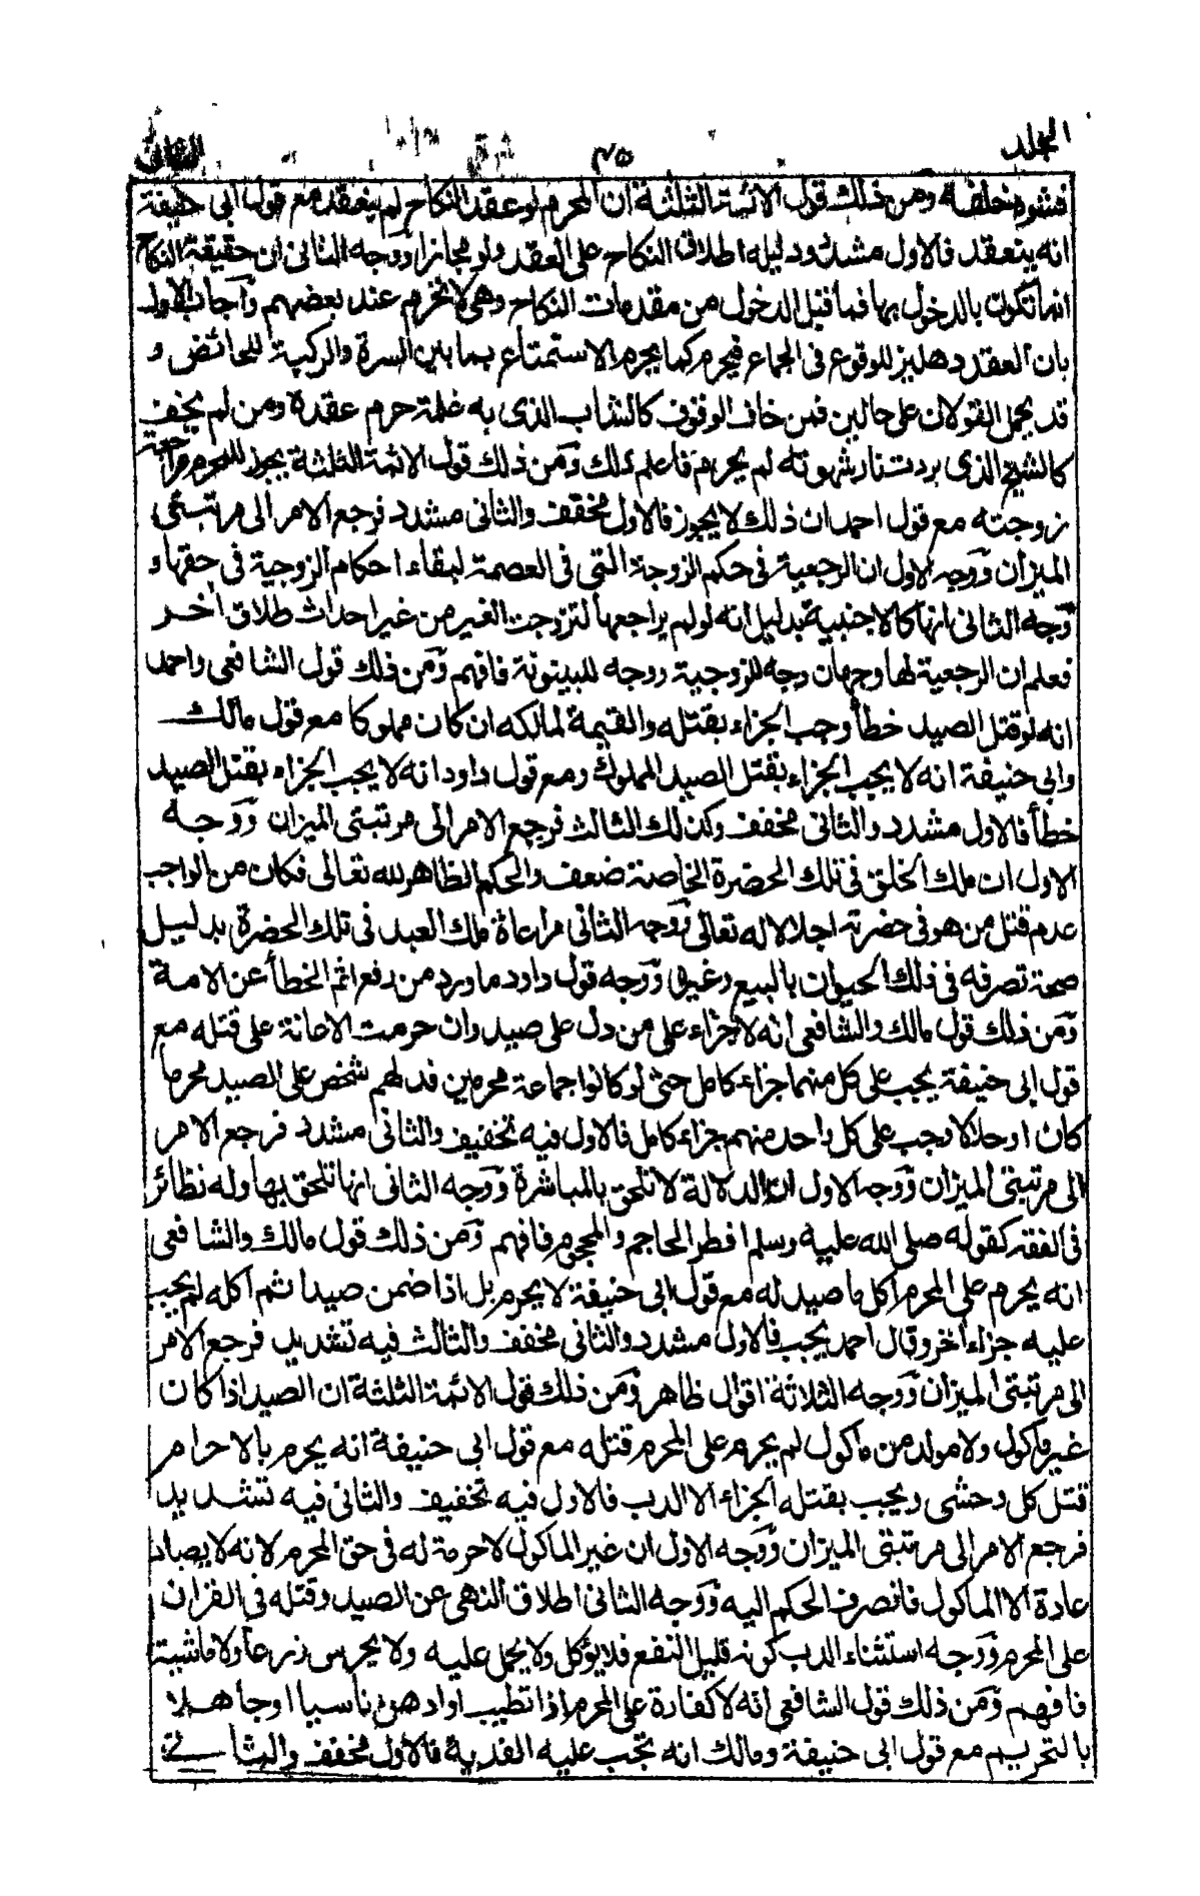 المجلد ٤٥ الثانى
فتشوه خلقه ومن ذلك قول الائمة الثلثة ان المحرم لو عقد النكاح لم ينعقد مع قول ابى حنيفة
انه ينعقد فالاول مشدد ودليله اطلاق النكاح على العقد ولو مجازا ووجه الثانى ان حقيقة النكاح
انما تكون بالدخول بها فما قبل الدخول من مقدمات النكاح وهى لا تحرم عند بعضهم وأجاب الاول
بان العقد دهليز للوقوع فى الجماع فيحرم كما يحرم الاستمتاع بما بين السرة والركبة للحائض و
قد يحمل القولان على حالين فمن خاف الوقوف كالشاب الذى به غلمة حرم عقدة ومن لم يخف
كالشيخ الذى بردت نار شهوته لم يحرم فاعلم ذلك ومن ذلك قول الائمة الثلثة يجوز للمحرم مراجعة
زوجته مع قول احمد ان ذلك لا يجوز فالاول مخفف والثانى مشدد فرجع الامر الى مرتبتى
الميزان ووجه الاول ان الرجعية فى حكم الزوجة التى فى العصمة لبقاء احكام الزوجية فى حقها و
وجه الثانى انها كالاجنبية بدليل انه لو لم يراجعها لتزوجت الغير من غير احداث طلاق اخر
فعلم ان الرجعية لها وجهان وجه للزوجية ووجه للبينونة فافهم ومن ذلك قول الشافعى واحمد
انه لو قتل الصيد خطأ وجب الجزاء بقتله والقيمة لمالكه ان كان مملوكا مع قول مالك
وابى حنيفة انه لا يجب الجزاء بقتل الصيد المملوك ومع قول داود انه لا يجب الجزاء بقتل الصيد
خطأ فالاول مشدد والثانى مخفف وكذلك الثالث فرجع الامر الى مرتبتى الميزان ووجه
الاول ان ملك الخلق فى تلك الحضرة الخاصة ضعف والحكم الظاهر لله تعالى فكان من الواجب
عدم قتل من هو فى حضرته اجلالا له تعالى ووجه الثانى مراعاة ملك العبد فى تلك الحضرة بدليل
صحة تصرفه فى ذلك الحيوان بالبيع وغيره ووجه قول داود ما ورد من رفع اثم الخطأ عن الامة
ومن ذلك قول مالك والشافعى انه لا جزاء على من دل على صيد وان حرمت الاعانة على قتله مع
قول ابى حنيفة يجب على كل منهما جزاء كامل حتى لو كانوا جماعة محرمين فدلهم شخص على الصيد محرما
كان او حلالا وجب على كل واحد منهم جزاء كامل فالاول فيه تخفيف والثانى مشدد فرجع الامر
الى مرتبتى الميزان ووجه الاول ان الدلالة لا تلحق بالمباشرة ووجه الثانى انها تلحق بها وله نظائر
فى الفقه كقوله صلى الله عليه وسلم افطر الحاجم والمحجوم فافهم ومن ذلك قول مالك والشافعى
انه يحرم على المحرم اكل ما صيد له مع قول ابى حنيفة لا يحرم بل اذا ضمن صيدا ثم اكله لم يجب
عليه جزاء اخر وقال احمد يجب فالاول مشدد والثانى مخفف والثالث فيه تشديد فرجع الامر
الى مرتبتى الميزان ووجه الثلاثة اقوال ظاهر ومن ذلك قول الائمة الثلثة ان الصيد اذا كان
غير مأكول ولا مولد من مأكول لم يحرم على المحرم قتله مع قول ابى حنيفة انه يحرم بالاحرام
قتل كل وحشى ويجب بقتله الجزاء الا الدب فالاول فيه تخفيف والثانى فيه تشديد
فرجع الامر الى مرتبتى الميزان ووجه الاول ان غير الماكول لا حرمة له فى حق المحرم لانه لا يصاد
عادة الا الماكول فانصرف الحكم اليه ووجه الثانى اطلاق النهى عن الصيد وقتله فى القران
على المحرم ووجه استثناء الدب كونه قليل النفع فلا يؤكل ولا يحمل عليه ولا يحرس زرعا ولا ماشية
فافهم ومن ذلك قول الشافعى انه لا كفارة على المحرم اذا تطيب او ادهن ناسيا او جاهلا
بالتحريم مع قول ابى حنيفة ومالك انه تجب عليه الفدية فالاول مخفف والثانى